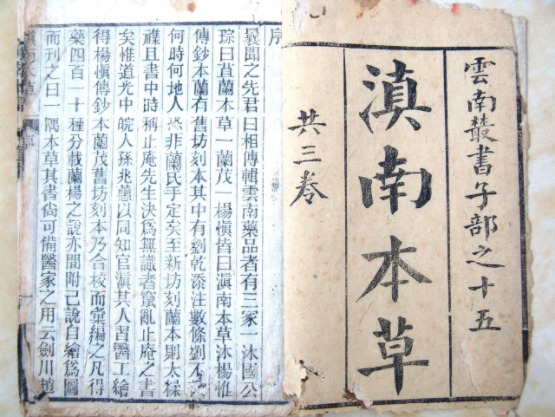 雲南叢書子部之十五
滇南本草
共三卷
序
曩聞之先君曰相傳輯雲南藥品者有三家一沐國公
琮曰苴蘭本草一蘭茂一楊愼皆曰滇南本草沐楊惟
傳鈔本蘭有舊坊刻本其中有劉乾添注數條劉不
何時何地人然非蘭氏手定矣至新坊刻蘭本則太
襍且書中時稱止庵先生決爲無識者竄亂止庵之書
矣惟道光中皖人孫兆蕙以同知官滇其人習醫工繪
得楊愼傳鈔本蘭茂舊坊刻本乃合校而彙編之凡得
藥四百一十種分載蘭楊之說亦間附己說自繪爲圖
而刊之曰一隅本草其書尙可備醫家之用云劍川趙
滇南本草 序 一